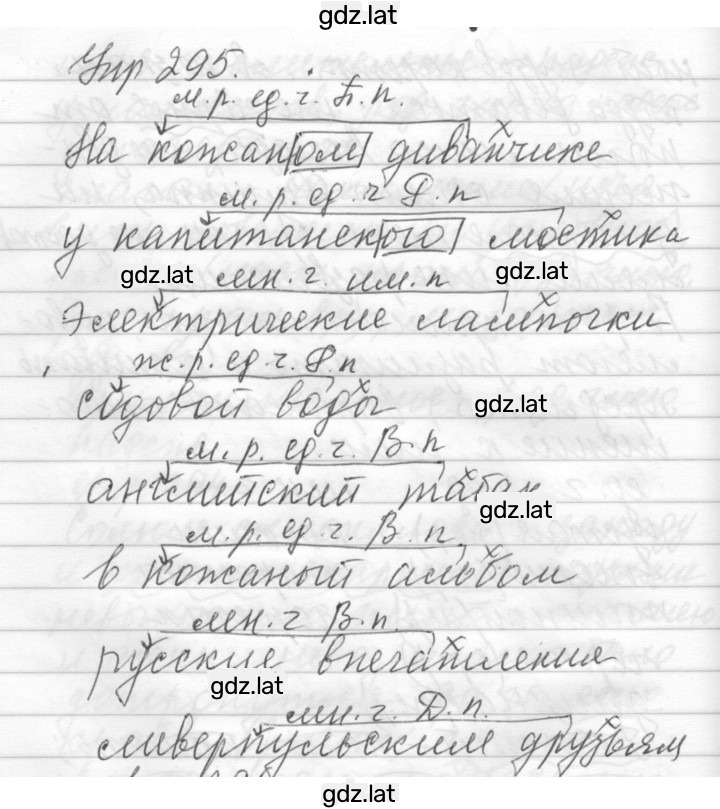 gdz.lat
Упр 295.
м. р. ед. ч. П. п.
На кожаном диванчике
м. р. ед. ч Р. п
у капитанского мостика
gdz.lat мн. ч. им. п gdz.lat
Электрические лампочки
ж. р. ед. ч. Р. п
содовой воды gdz.lat
м. р. ед. ч. В. п
английский табак
gdz.lat
м. р. ед. ч. В. п
в кожаный альбом
мн. ч В. п.
русские впечатления
gdz.lat
мн. ч. Д. п.
ливерпульским друзьям
gdz.lat